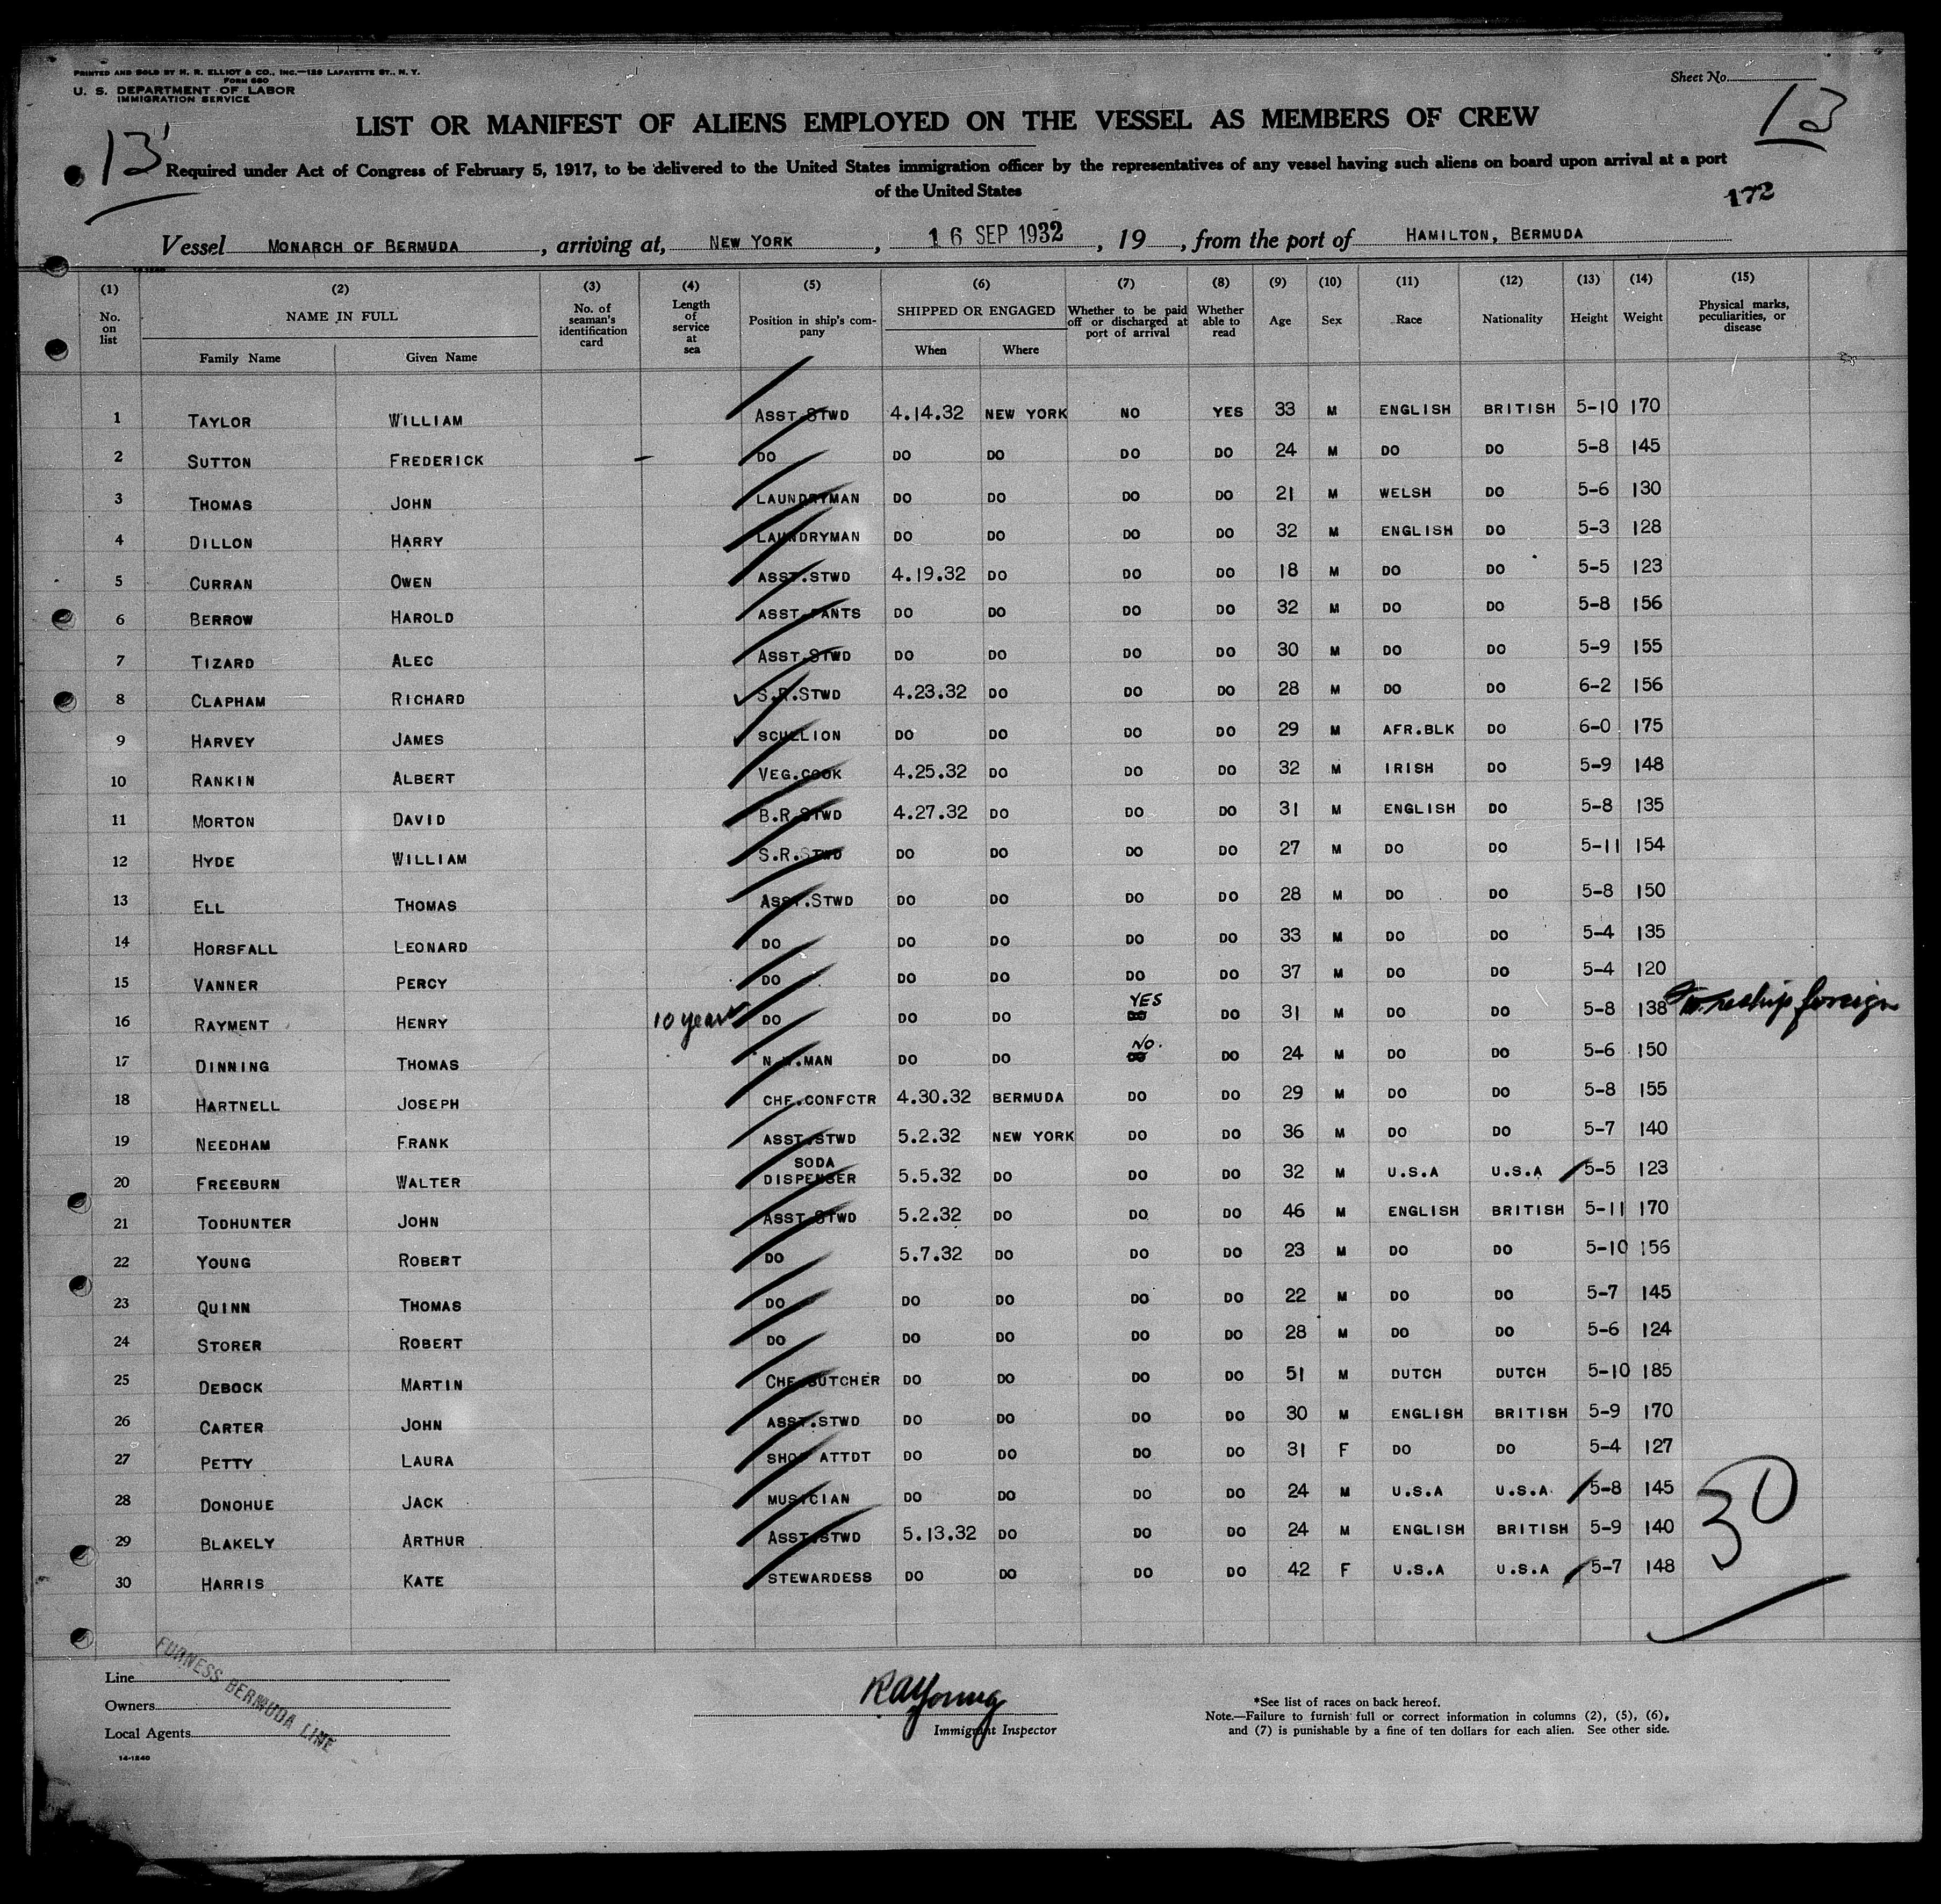 PRINTED AND SOLD BY H. R. ELLIOT & CO., INC.—129 LAFAYETTE ST., N. Y.
FORM 680
U. S. DEPARTMENT OF LABOR
IMMIGRATION SERVICE
Sheet No.
13
13
LIST OR MANIFEST OF ALIENS EMPLOYED ON THE VESSEL AS MEMBERS OF CREW
Required under Act of Congress of February 5, 1917, to be delivered to the United States immigration officer by the representatives of any vessel having such aliens on board upon arrival at a port
of the United States
172
Vessel MONARCH OF BERMUDA, arriving at, NEW YORK, 16 SEP 1932, 19, from the port of HAMILTON, BERMUDA
14-1240
(1) (2) (3) (4) (5) (6) (7) (8) (9) (10) (11) (12) (13) (14) (15)
No. on list NAME IN FULL Family Name Given Name No. of seaman's identification card Length of service at sea Position in ship's company SHIPPED OR ENGAGED When Where Whether to be paid off or discharged at port of arrival Whether able to read Age Sex Race Nationality Height Weight Physical marks, peculiarities, or disease
1 TAYLOR WILLIAM ASST.STWD 4.14.32 NEW YORK NO YES 33 M ENGLISH BRITISH 5-10 170
2 SUTTON FREDERICK — DO DO DO DO DO 24 M DO DO 5-8 145
3 THOMAS JOHN LAUNDRYMAN DO DO DO DO 21 M WELSH DO 5-6 130
4 DILLON HARRY LAUNDRYMAN DO DO DO DO 32 M ENGLISH DO 5-3 128
5 CURRAN OWEN ASST.STWD 4.19.32 DO DO DO 18 M DO DO 5-5 123
6 BERROW HAROLD ASST.PANTS DO DO DO DO 32 M DO DO 5-8 156
7 TIZARD ALEC ASST.STWD DO DO DO DO 30 M DO DO 5-9 155
8 CLAPHAM RICHARD S.R.STWD 4.23.32 DO DO DO 28 M DO DO 6-2 156
9 HARVEY JAMES SCULLION DO DO DO DO 29 M AFR.BLK DO 6-0 175
10 RANKIN ALBERT VEG.COOK 4.25.32 DO DO DO 32 M IRISH DO 5-9 148
11 MORTON DAVID B.R.STWD 4.27.32 DO DO DO 31 M ENGLISH DO 5-8 135
12 HYDE WILLIAM S.R.STWD DO DO DO DO 27 M DO DO 5-11 154
13 ELL THOMAS ASST.STWD DO DO DO DO 28 M DO DO 5-8 150
14 HORSFALL LEONARD DO DO DO DO DO 33 M DO DO 5-4 135
15 VANNER PERCY DO DO DO DO DO 37 M DO DO 5-4 120
16 RAYMENT HENRY 10 years DO DO DO YES DO DO 31 M DO DO 5-8 138 To reship foreign
17 DINNING THOMAS N.W.MAN DO DO NO. DO DO 24 M DO DO 5-6 150
18 HARTNELL JOSEPH CHF.CONFCTR 4.30.32 BERMUDA DO DO 29 M DO DO 5-8 155
19 NEEDHAM FRANK ASST.STWD 5.2.32 NEW YORK DO DO 36 M DO DO 5-7 140
20 FREEBURN WALTER SODA DISPENSER 5.5.32 DO DO DO 32 M U.S.A U.S.A 5-5 123
21 TODHUNTER JOHN ASST.STWD 5.2.32 DO DO DO 46 M ENGLISH BRITISH 5-11 170
22 YOUNG ROBERT DO 5.7.32 DO DO DO 23 M DO DO 5-10 156
23 QUINN THOMAS DO DO DO DO DO 22 M DO DO 5-7 145
24 STORER ROBERT DO DO DO DO DO 28 M DO DO 5-6 124
25 DEBOCK MARTIN CHF.BUTCHER DO DO DO DO 51 M DUTCH DUTCH 5-10 185
26 CARTER JOHN ASST.STWD DO DO DO DO 30 M ENGLISH BRITISH 5-9 170
27 PETTY LAURA SHOP ATTDT DO DO DO DO 31 F DO DO 5-4 127
28 DONOHUE JACK MUSICIAN DO DO DO DO 24 M U.S.A U.S.A. 5-8 145
29 BLAKELY ARTHUR ASST.STWD 5.13.32 DO DO DO 24 M ENGLISH BRITISH 5-9 140
30 HARRIS KATE STEWARDESS DO DO DO DO 42 F U.S.A U.S.A 5-7 148
30
Line
Owners
Local Agents
FURNESS BERMUDA LINE
14-1240
R A Young
Immigrant Inspector
*See list of races on back hereof.
Note.—Failure to furnish full or correct information in columns (2), (5), (6),
and (7) is punishable by a fine of ten dollars for each alien. See other side.